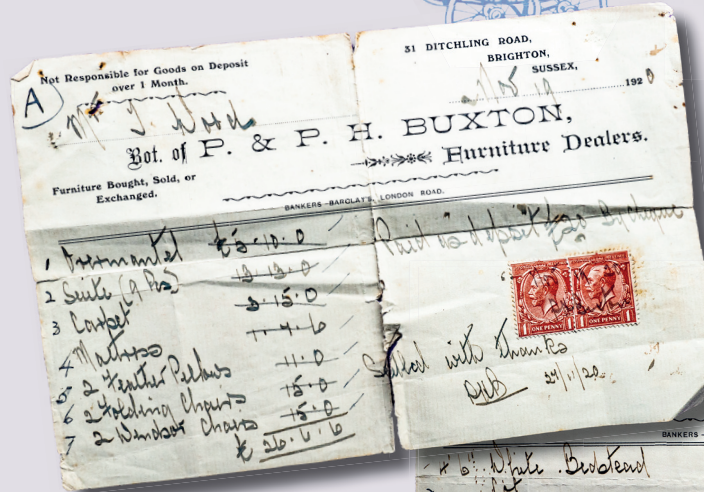 Not Responsible for Goods on Deposit
over 1 Month.
A
31 DITCHLING ROAD,
BRIGHTON,
SUSSEX,
Nov 19 1920
Mr J. Wood
Bot. of P. & P. H. BUXTON,
Furniture Dealers.
Furniture Bought, Sold, or
Exchanged.
BANKERS-BARCLAY'S, LONDON ROAD.
1 Overmantel £5-10-0
2 Suite (9 Pcs) 13-13-0
3 Carpet 3-15-0
4 Mattress 1-7-6
5 2 Feather Pillows 11-0
6 2 Folding Chairs 15-0
7 2 Windsor Chairs 15-0
£ 26-6-6
Paid as deposit £20 By cheque
ONE PENNY
ONE PENNY
Settled with thanks
27/11/20
BANKERS -
White Bedstead